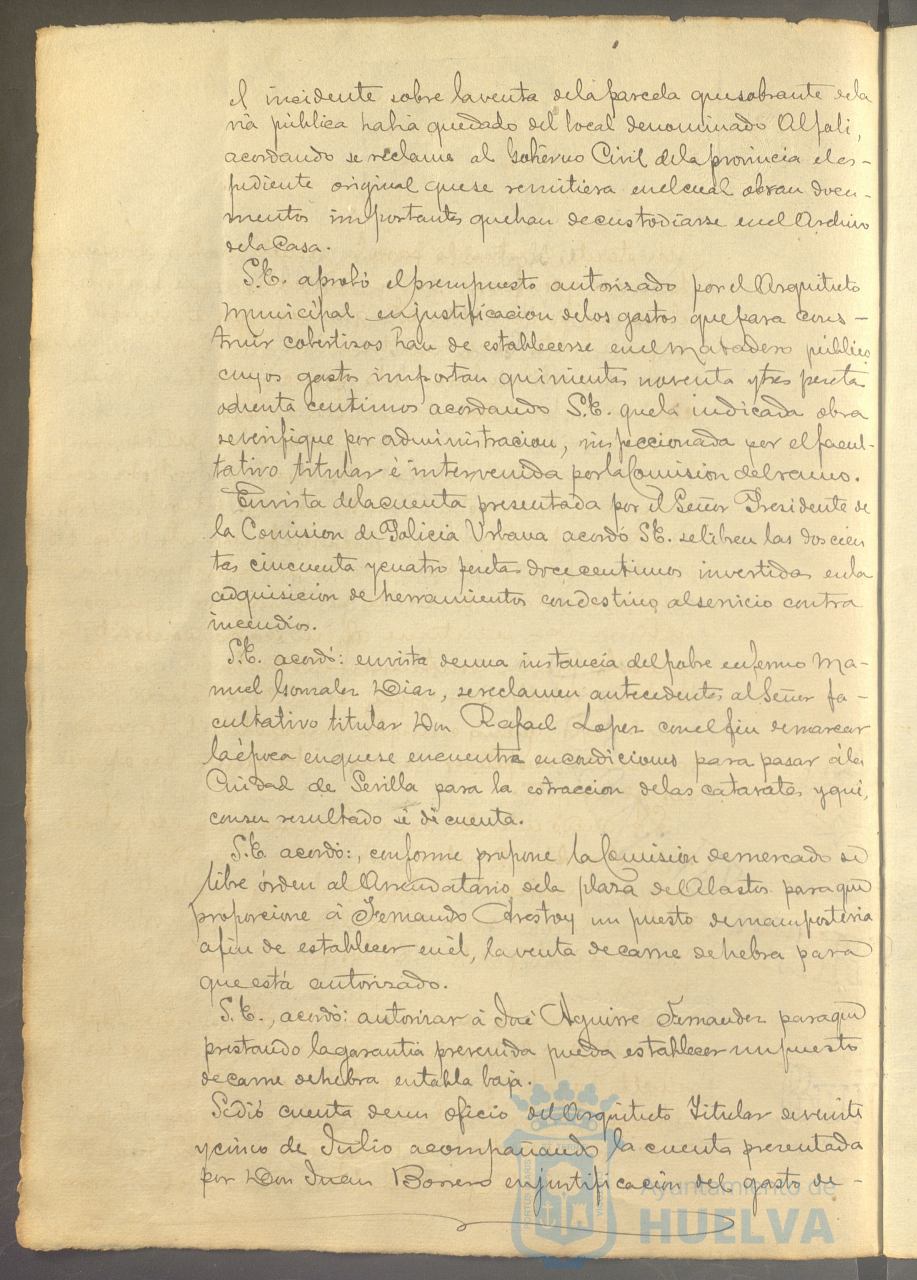 el incidente sobre la venta de la parcela que sobrante de la
via pública habia quedado del local denominado Alfolí,
acordando se reclame al Gobierno Civil de la provincia el es-
pediente original que se remitiera en el cual obran docu-
mentos importantes que han de custodiarse en el Archivo
de la Casa.
S.E. aprobó el presupuesto autorizado por el Arquitecto
Municipal en justificacion de los gastos que para cons-
truir cobertizos han de establecerse en el matadero público
cuyos gastos importan quinientas noventa y tres pesetas
ochenta centimos acordando S.E. que la indicada obra
se verifique por administracion, inspeccionada por el facul-
tativo titular é intervenida por la Comision del ramo.
En vista de la cuenta presentada por el Señor Presidente de
la Comision de Policia Urbana acordó S.E. se libren las doscien
tas cincuenta y cuatro pesetas doce centimos invertidas en la
adquisicion de herramientos con destino al servicio contra
incendios.
S.E. acordó: en vista de una instancia del pobre enfermo Ma-
nuel Gonzalez Diaz, se reclamen antecedentes al Señor fa-
cultativo titular Don Rafael Lopez con el fin de marcar
la época en que se encuentra en condiciones para pasar á la
Ciudad de Sevilla para la estraccion de las cataratas y que,
con su resultado se dé cuenta.
S.E. acordó:, conforme propone la Comision de mercado se
libre órden al Arrendatario de la plaza de Abastos para que
proporcione á Fernando Arestoy un puesto de mamposteria
a fin de establecer en él, la venta de carne de hebra para
que está autorizado.
S.E., acordó: autorizar á José Aguirre Fernandez para que
prestando la garantia prevenida pueda establecer un puesto
de carne de hebra en tabla baja.
Se dió cuenta de un oficio del Arquitecto Titular de veinte
y cinco de Julio acompañando la cuenta presentada
por Don Juan Borrero en justificacion del gasto de-
Ayuntamiento de
HUELVA